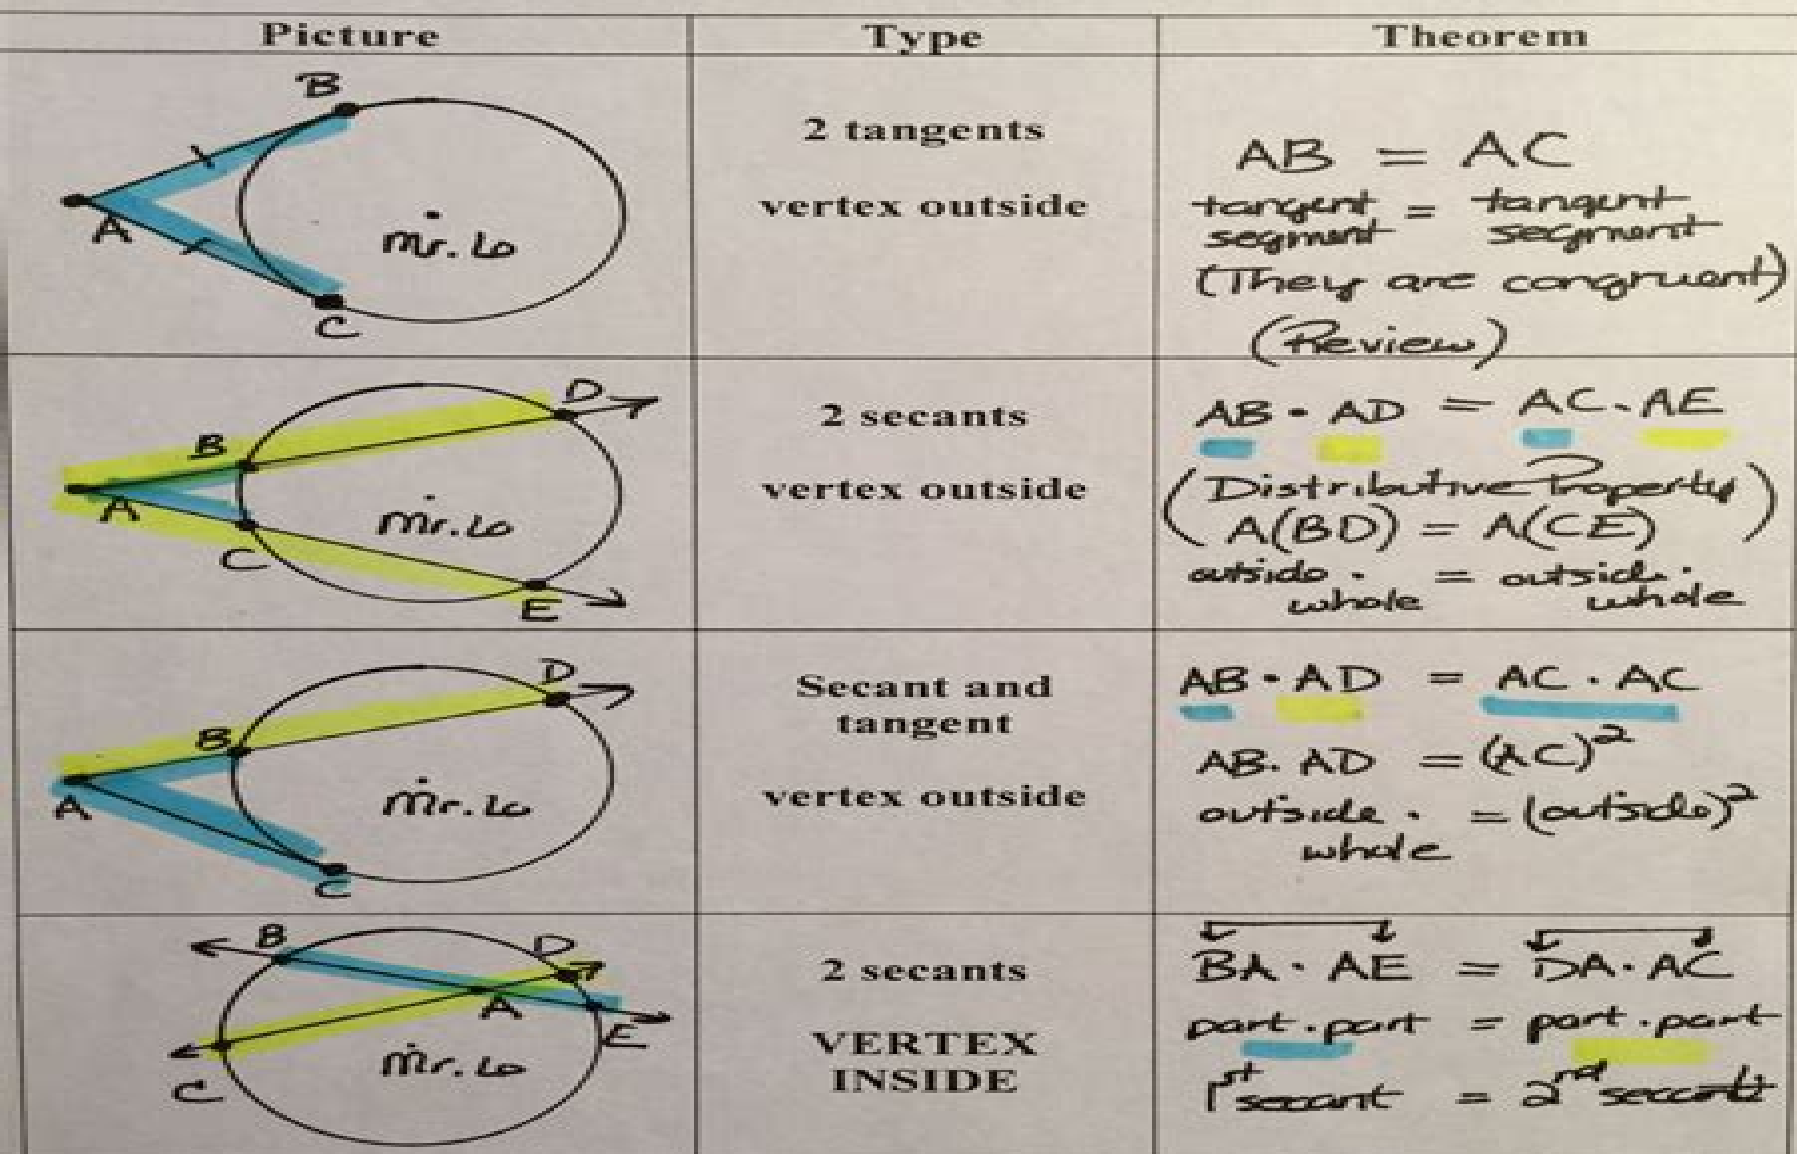 Picture Type Theorem
B
A
mr. Lo
C
2 tangents
vertex outside
AB = AC
tangent segment = tangent segment
(They are congruent)
(Review)
D
B
A
mr. Lo
C
E
2 secants
vertex outside
AB · AD = AC · AE
(Distributive Property)
A(BD) = A(CE)
outside · whole = outside · whole
D
B
A
mr. Lo
C
Secant and
tangent
vertex outside
AB · AD = AC · AC
AB · AD = (AC)²
outside · whole = (outside)²
B
D
A
E
mr. Lo
C
2 secants
VERTEX
INSIDE
BA · AE = DA · AC
part · part = part · part
1st secant = 2nd secant